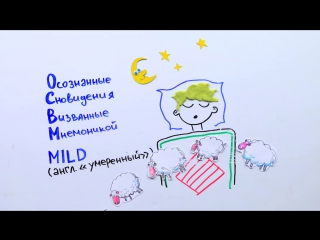 Осознанные
Сновидения
Вызванные
Мнемоникой
MILD
(англ. «умеренный»)